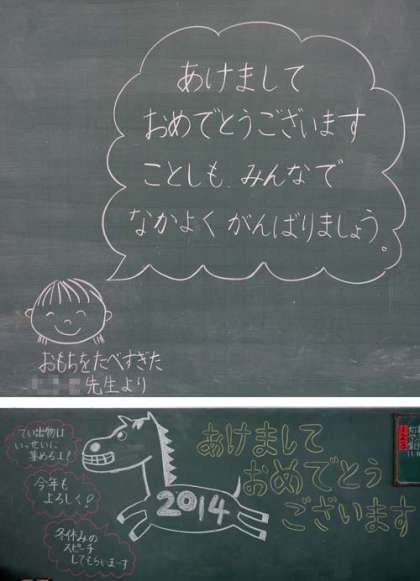 あけまして
おめでとうございます
ことしも、みんなで
なかよく がんばりましょう。
おもちをたべすぎた
先生より
てい出物は
いっせいに
集めるよ!
今年も
よろしく?
冬休みの
スピーチ
してもらいまーす
2014
あけまして
おめでとう
ございます